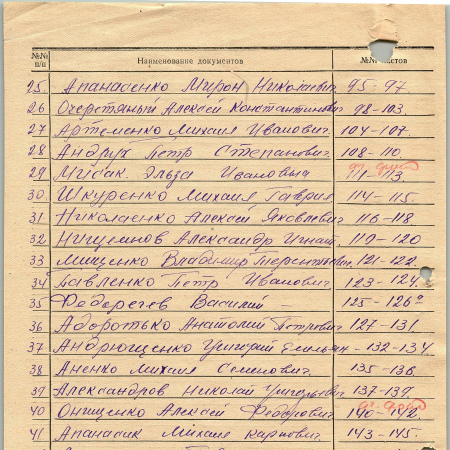 №№ п/п Наименование документов №№ листов
25. Апанасенко Мирон Николаевич 95-97.
26 Очеретяный Алексей Константинович 98-103.
27 Артеменко Михаил Иванович. 104-107.
28 Андрух Петр Степанович. 108-110
29 Мисак. Эльза Ивановна 111-113
30. Шкуренко Михаил Гаврил 114-115.
31 Николаенко Алексей Яковлевич 116-118
32 Александр Игнат. 119-120
33 Мищенко Владимир Терентьевич. 121-122.
34 Павленко Петр Иванович. 123-124.
35 Василий - 125-126
36 Анатолий Петрович 127-131.
37 Андрющенко Григорий Емельян - 132-134
38 Аненко Михаил Семенович. 135-136
39 Александров Николай Григорьевич 137-139.
40 Онищенко Алексей Федорович. 140-142.
41 Апанасик Михаил Карпович. 143-145.